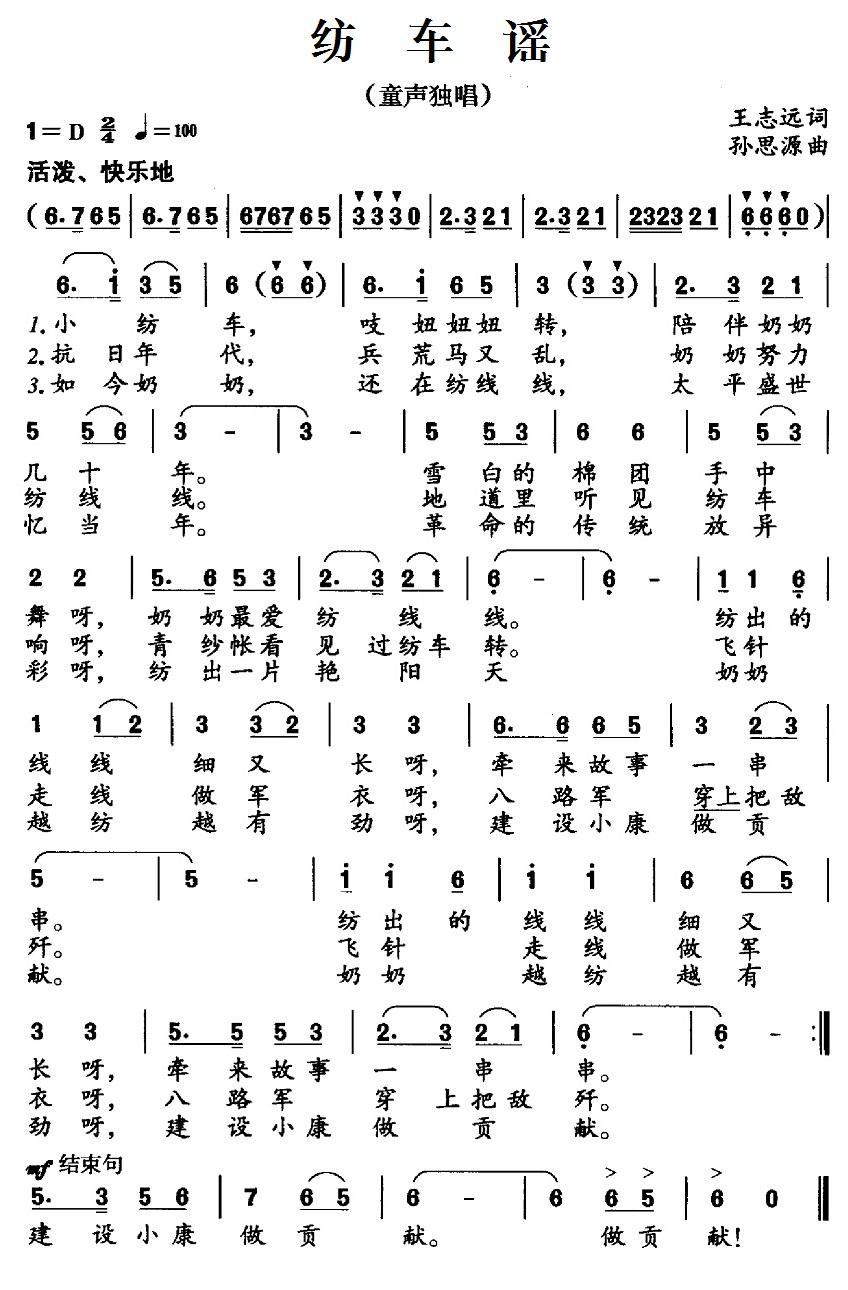 纺 车 谣
（童声独唱）
1=D 2/4 ♩=100
王志远词
孙思源曲
活泼、快乐地
( 6. 7 6 5 | 6. 7 6 5 | 6 7 6 7 6 5 | 3 3 3 0 | 2. 3 2 1 | 2. 3 2 1 | 2 3 2 3 2 1 | 6̣ 6̣ 6̣ 0 ) |
6. i 3 5 | 6 ( 6 6 ) | 6. i 6 5 | 3 ( 3 3 ) | 2. 3 2 1 |
1.小 纺 车， 吱 妞妞妞 转， 陪 伴奶奶
2.抗 日年 代， 兵 荒马又 乱， 奶 奶努力
3.如 今奶 奶， 还 在纺线 线， 太 平盛世
5 5 6 | 3 - | 3 - | 5 5 3 | 6 6 | 5 5 3 |
几 十 年。 雪 白的 棉 团 手 中
纺 线 线。 地 道里 听 见 纺 车
忆 当 年。 革 命的 传 统 放 异
2 2 | 5. 6 5 3 | 2. 3 2 1 | 6̣ - | 6̣ - | 1 1 6̣ |
舞 呀， 奶 奶最爱 纺 线 线。 纺出的
响 呀， 青 纱帐看 见 过纺车 转。 飞针
彩 呀， 纺 出一片 艳 阳 天 奶奶
1 1 2 | 3 3 2 | 3 3 | 6. 6 6 5 | 3 2 3 |
线 线 细 又 长 呀， 牵 来故事 一 串
走 线 做 军 衣 呀， 八 路军 穿上把敌
越 纺 越 有 劲 呀， 建 设小康 做 贡
5 - | 5 - | i i 6 | i i | 6 6 5 |
串。 纺 出 的 线 线 细 又
歼。 飞 针 走 线 做 军
献。 奶 奶 越 纺 越 有
3 3 | 5. 5 5 3 | 2. 3 2 1 | 6̣ - | 6̣ - :‖
长 呀， 牵 来故事 一 串 串。
衣 呀， 八 路军 穿 上把敌 歼。
劲 呀， 建 设小康 做 贡 献。
mf 结束句
5. 3 5 6 | 7 6 5 | 6 - | 6 6 5 | 6 0 ‖
建 设小康 做 贡 献。 做贡 献！